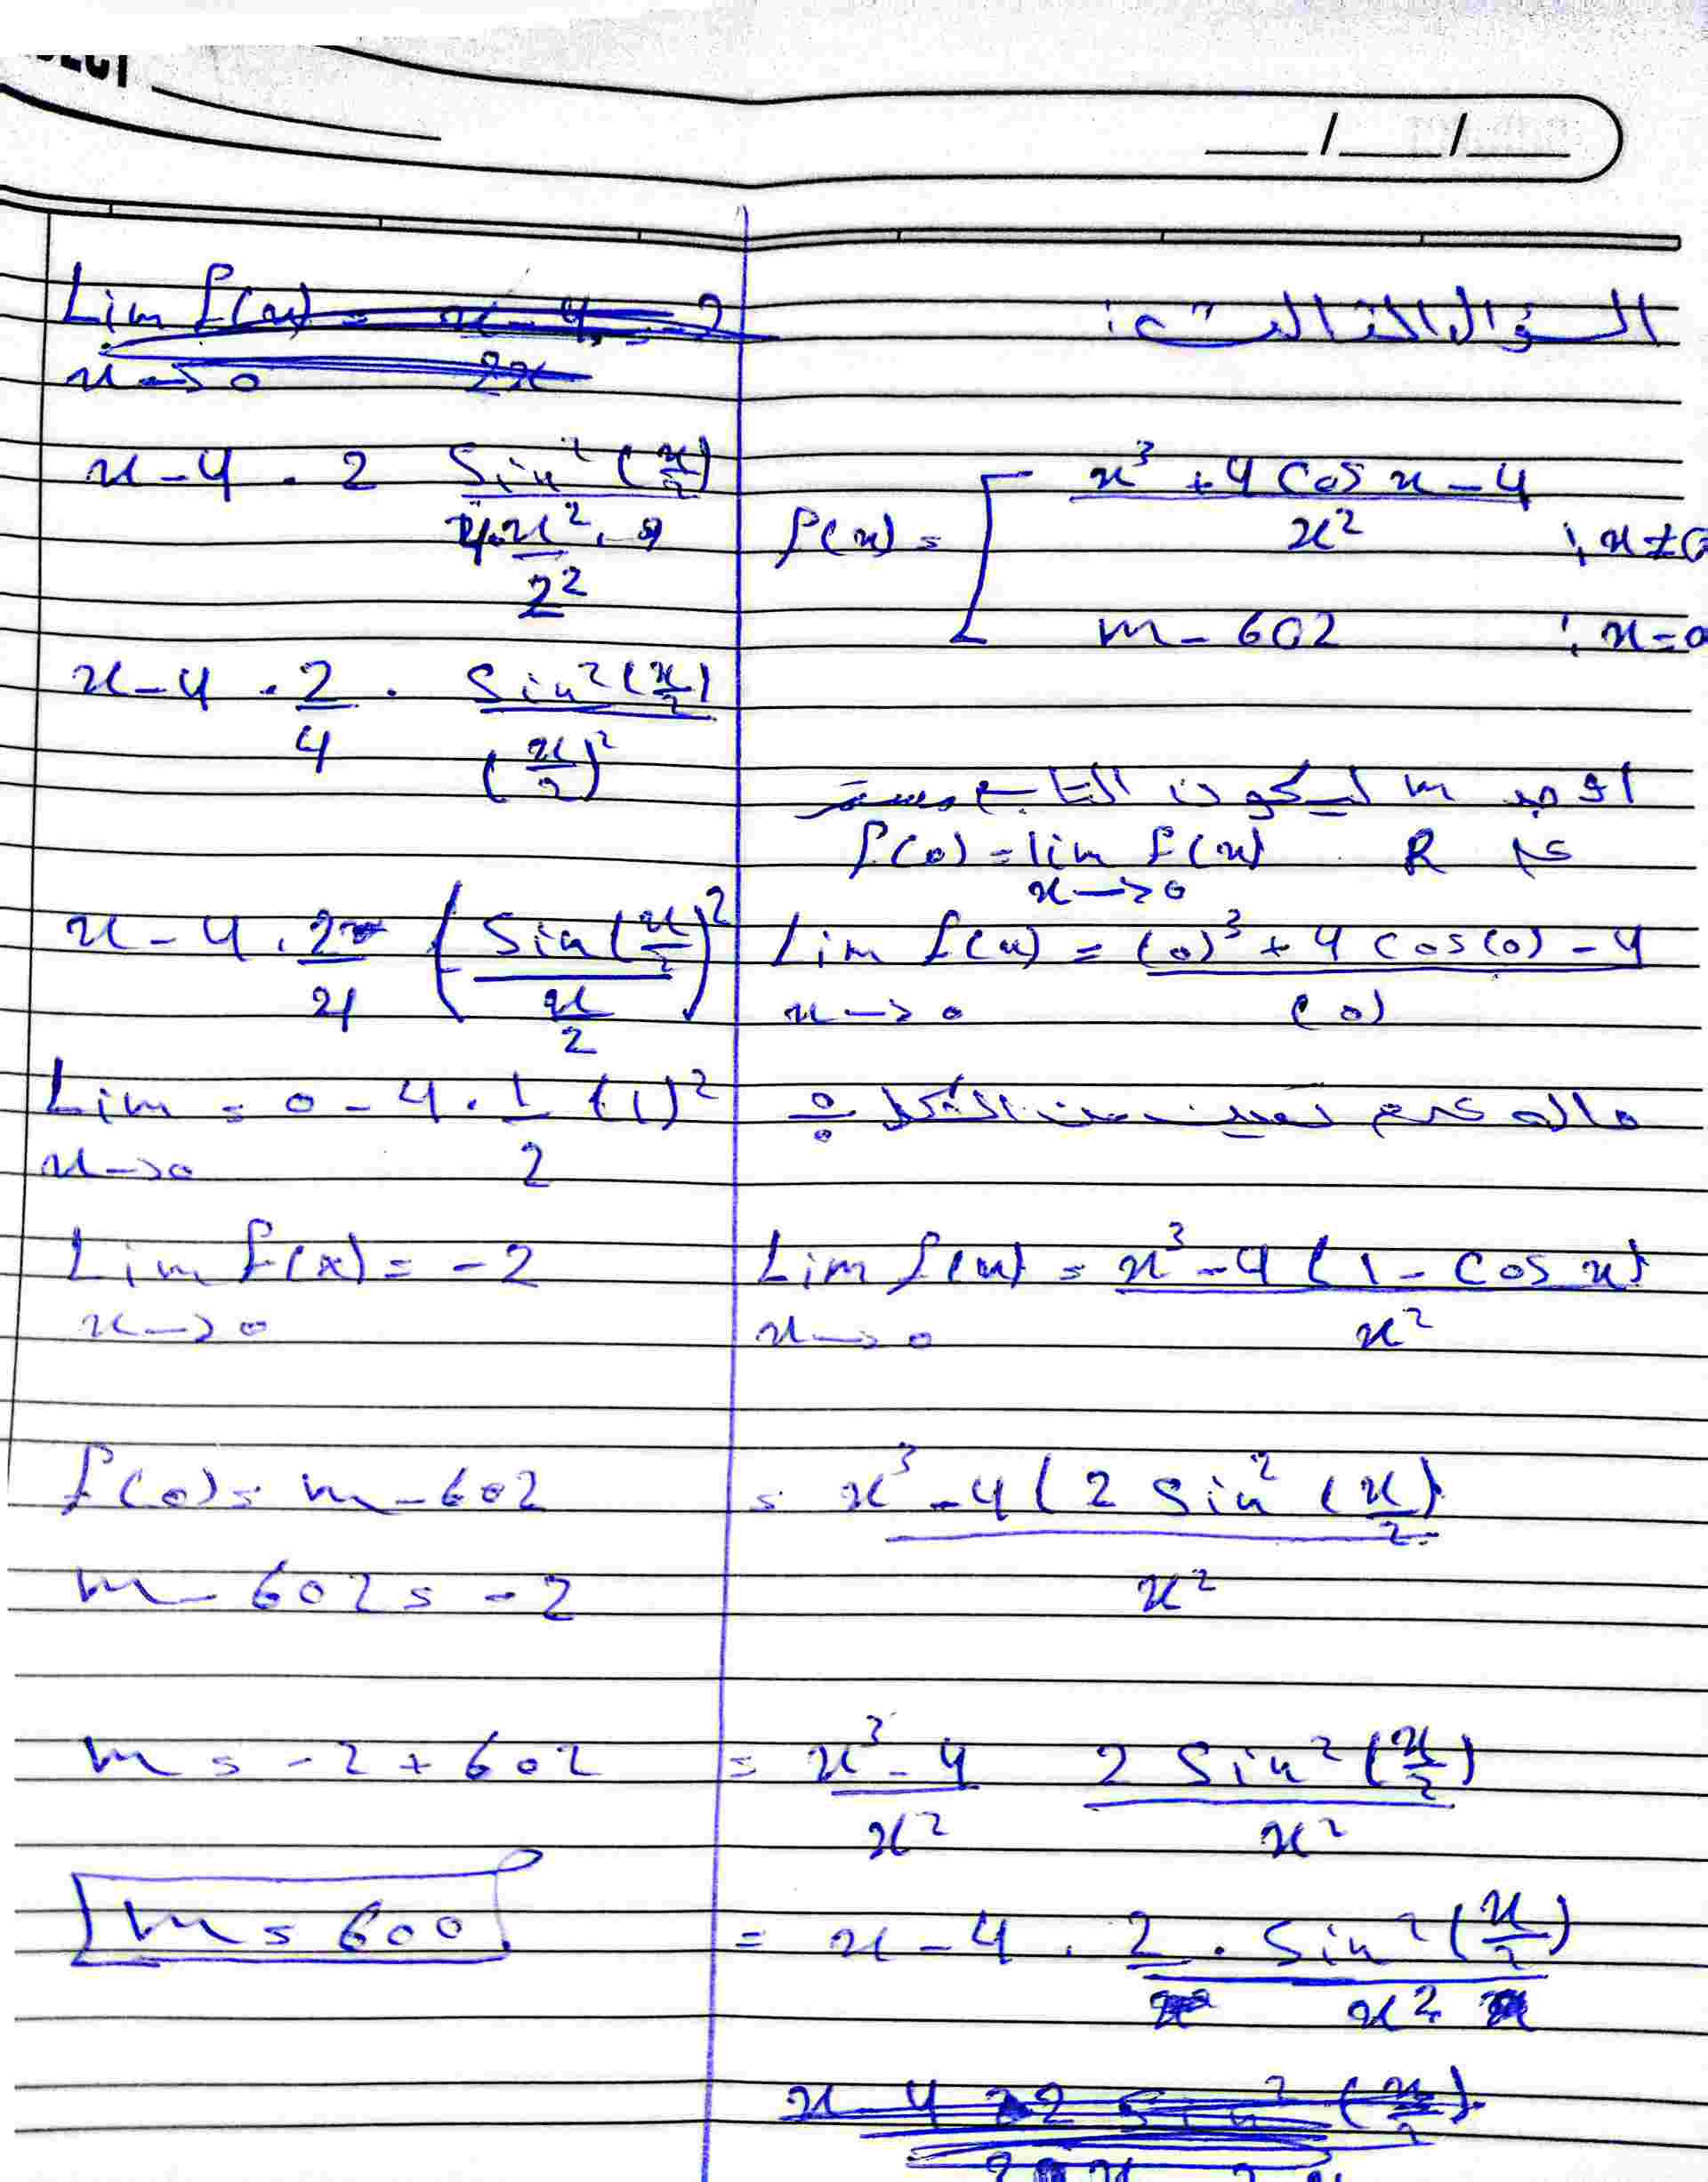 السؤال الثالث:
f(x) = [ (x³ + 4 cos x - 4) / x² ; x ≠ 0
m - 602 ; x = 0
اوجد m ليكون التابع مستمر
على R f(0) = lim f(x) x→0
Lim f(x) x→0 = ((0)³ + 4 cos(0) - 4) / (0)
حالة عدم تعيين من الشكل 0/0
Lim f(x) x→0 = (x³ - 4(1 - cos x)) / x²
= (x³ - 4(2 sin²(x/2)) / x²
= (x³ - 4) / x² (2 sin²(x/2)) / x²
= x - 4 . 2 . sin²(x/2) / x²
x - 4 . 2 sin²(x/2) / (x²/2²)
x - 4 . 2/4 . sin²(x/2) / (x/2)²
x - 4 . 2/4 (sin(x/2) / (x/2))²
Lim x→0 = 0 - 4 . 1/2 (1)²
Lim f(x) = -2 x→0
f(0) = m - 602
m - 602 = -2
m = -2 + 602
m = 600